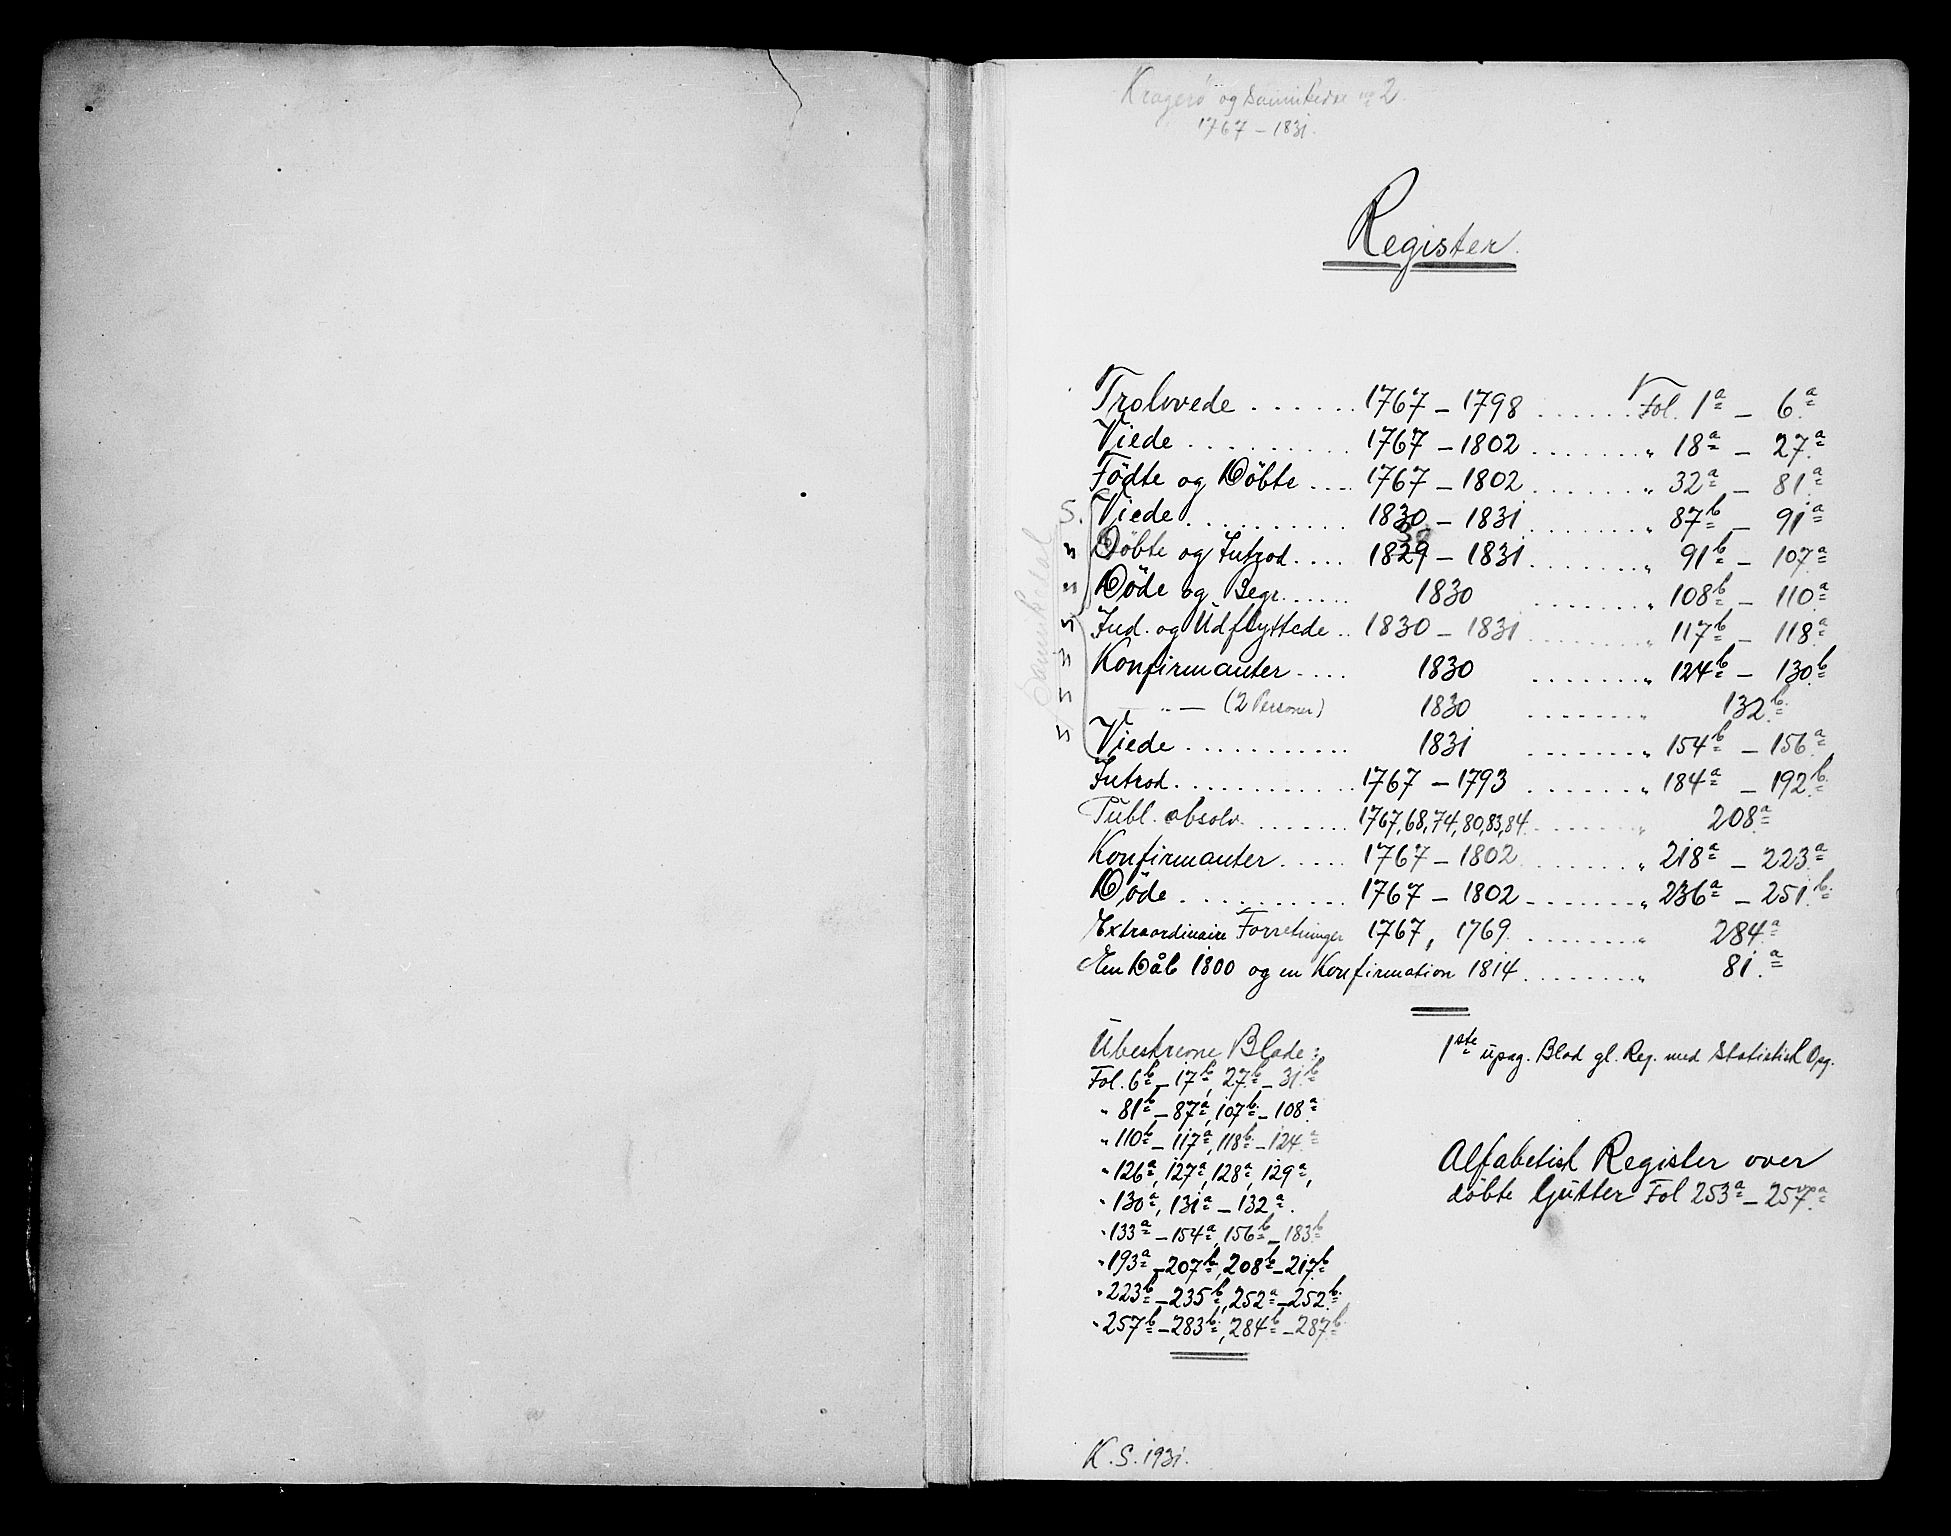 Kragerø og Sannikedal no 2
1767 – 1831.
Register.
Trolovede ....... 1767 – 1798 ...... Fol. 1a – 6a
Viede .......... 1767 – 1802 ....... „ 18a – 27a
Födte og Döbte .... 1767 – 1802 ....... „ 32a – 81a
S. Viede .......... 1830 – 1831 ....... „ 87b – 91a
„ Döbte og Introd. .... 1829 30 – 1831 ....... „ 91b – 107a
„ Döde og Begr. ...... 1830 ....... „ 108b – 110a
„ Ind. og Udflyttede .. 1830 – 1831 ....... „ 117b – 118a
„ Konfirmanter .... 1830 ....... „ 124b – 130b
„ — „ — (2 Personer) 1830 ....... „ 132b
„ Viede ........... 1831 ....... „ 154b – 156a
Sannikedal
Introd. ........... 1767 – 1793 ....... „ 184a – 192b
Publ. absolv. ....... 1767, 68, 74, 80, 83, 84 ....... „ 208a
Konfirmanter ..... 1767 – 1802 ....... „ 218a – 223a
Döde .......... 1767 – 1802 ....... „ 236a – 251b
Extraordinaire Forretninger 1767, 1769 ....... „ 284a
En Dåb 1800 og en Konfirmation 1814 ....... „ 81a
Ubeskrevne Blade:
Fol. 6b – 17b, 27b – 31b
„ 81b – 87a, 107b – 108a
„ 110b – 117a, 118b – 124a
„ 126a, 127a, 128a, 129a,
„ 130a, 131a – 132a.
„ 133a – 154a, 156b – 183b
„ 193a – 207b, 208b – 217b
„ 223b – 235b, 252a – 252b
„ 257b – 283b, 284b – 287b
1ste upag. Blad gl. Reg. med Statistisk Opg.
Alfabetisk Register over
döbte Gutter Fol 253a – 257a
K. S. 1931.